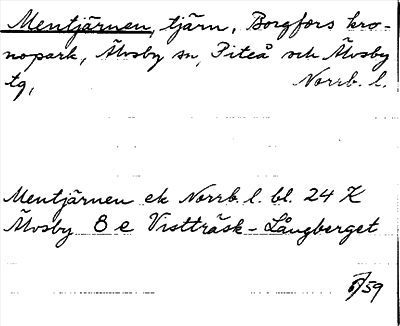 Mentjärnen, tjärn, Borgfors kro-
nopark, Älvsby sn, Piteå och Älvsby
tg, Norrb. l.
Mentjärnen ek Norrb. l. bl. 24 K
Älvsby 8 e Vistträsk - Långberget
/59